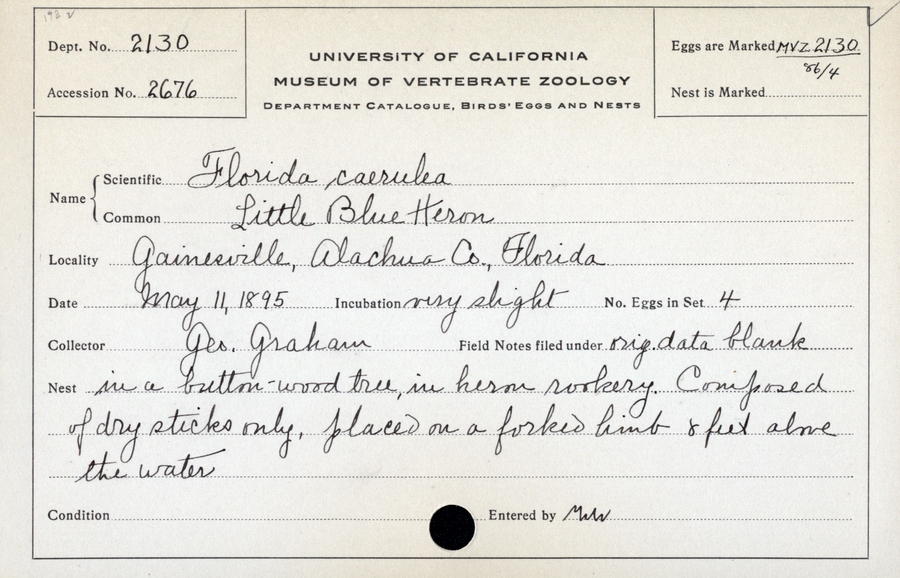 Dept. No. 2130
Accession No. 2676
UNIVERSITY OF CALIFORNIA
MUSEUM OF VERTEBRATE ZOOLOGY
DEPARTMENT CATALOGUE, BIRDS' EGGS AND NESTS
Eggs are Marked MVZ 2130
86/4
Nest is Marked
Name
Scientific Florida caerulea
Common Little Blue Heron
Locality Gainesville, Alachua Co., Florida
Date May 11, 1895 Incubation very slight No. Eggs in Set 4
Collector Geo. Graham Field Notes filed under orig. data blank
Nest in a button-wood tree, in heron rookery. Composed
of dry sticks only, placed on a forked limb 8 feet above
the water
Condition
Entered by